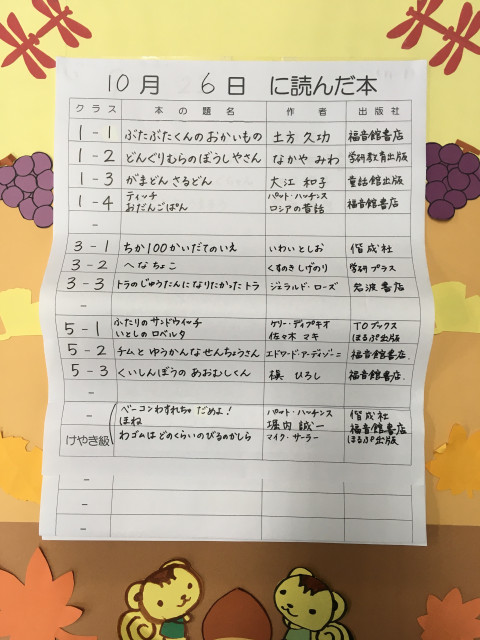 10月 6日 に読んだ本
クラス 本の題名 作者 出版社
1-1 ぶたぶたくんのおかいもの 土方久功 福音館書店
1-2 どんぐりむらのぼうしやさん なかやみわ 学研教育出版
1-3 がまどんさるどん 大江和子 童話館出版
1-4 ティッチ パット・ハッチンス 福音館書店
おだんごぱん ロシアの昔話
-
3-1 ちか100かいだてのいえ いわいとしお 偕成社
3-2 へなちょこ くすのきしげのり 学研プラス
3-3 トラのじゅうたんになりたかったトラ ジェラルド・ローズ 岩波書店
-
5-1 ふたりのサンドウィッチ ケリー・ディプキオ TOブックス
いとしのロベルタ 佐々木マキ ほるぷ出版
5-2 チムとゆうかんなせんちょうさん エドワード・アーディゾーニ 福音館書店.
5-3 くいしんぼうのあおむしくん 槇ひろし 福音館書店.
-
- ベーコンわすれちゃだめよ! パット・ハッチンス 偕成社
ほね 堀内誠一 福音館書店
けやき級 わゴムはどのくらいのびるのかしら マイク・サーラー ほるぷ出版
-
-
-